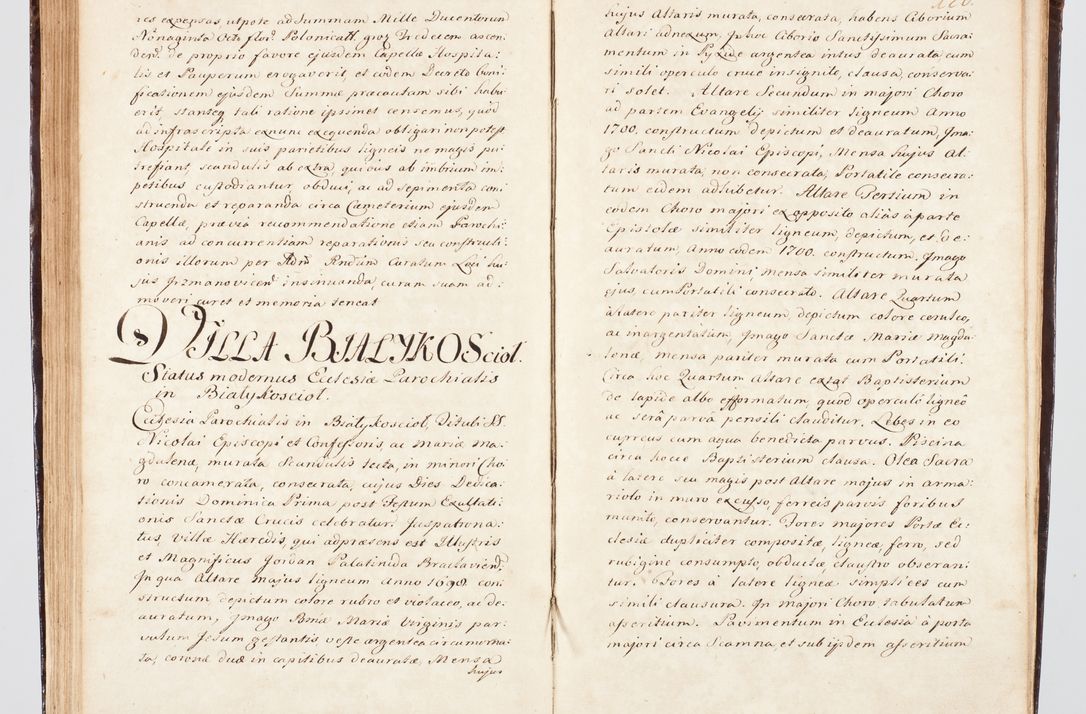 res expensas utpote ad Summam Mille Ducentorum
Nonaginta Octo flor: Polonicall: groz Tredecem ascen:
den: de proprio favore ejusdem Capellæ Hospita:
lis et Pauperum erogaverit, et eodem Decreto boni:
ficationem ejusdem Summæ præcautam sibi habu:
erit, stanteq tali ratione ipsimet censemus, quod
ad infrascripta exnunc exequenda obligari non potest.
Hospitale in suis parietibus ligneis ne magis pu:
trefiant, scandulis ab extra, quibus ab imbrium im:
petibus custodiantur, obduci, ac ad sepimenta con:
struenda et reparanda circa Cæmeterium ejusdem
Capellæ, prævia recommendatione etiam Parochi:
anis ad concurrentiam reparationis seu constructi:
onis illorum per Adm Rndum Curatum Loci hu:
jus Jrzmanovicen insinuanda, curam suam ad:
moveri curet et memoria teneat
VILLA BIALYKOSciol.
Status modernus Ecclesiæ Parochialis
in Bialykosciol.
Ecclesia Parochialis in Bialykosciol, Tituli SS.
Nicolai Episcopi et Confessoris, ac Mariæ Ma:
gdalenæ, murata Scandulis tecta, in minori Cho:
ro concamerata, consecrata, cujus Dies Dedica:
tionis Dominica Prima post Festum Exaltati:
onis Sanctæ Crucis celebratur. Juspatrona:
tus, Villæ Hæredis, qui adpræsens est Illustris
et Magnificus Jordan Palatinida Braclavien.
In qua Altare majus ligneum Anno 1698 con:
structum depictum colore rubro et violaceo, ac de:
auratum, Jmago Bmæ Mariæ Virginis par:
vulum Jesum gestantis veste argentea circumorna:
ta, coronæ duæ in capitibus deauratæ, Mensa
hujus
hujus Altaris murata, consecrata, habens Ciborium
Altari adnexum, in hoc Ciborio Sanctissimum Sacra:
mentum in Pyxide argentea intus deaurata cum
simili operculo cruce insignito, clausa, conserva:
ri solet. Altare Secundum in majori Choro
ad partem Evangelij similiter ligneum Anno
1700. constructum depictum et deauratum, Jma:
go Sancti Nicolai Episcopi, Mensa hujus Al:
taris murata, non consecrata, Portatile consecra:
tum eidem adhibetur. Altare Tertium in
eodem Choro majori ex opposito aliàs à parte
Epistolæ similiter ligneum, depictum, et de:
auratum, Anno eodem 1700. constructum. Jmago
Salvatoris Domini mensa similiter murata
ejus, cum Portatili consecrato. Altare Quartum
à latere pariter ligneum, depictum colore ceruleo,
ac inargentatum, Jmago Sanctæ Mariæ Magda:
lenæ, mensa pariter murata cum Portatili.
Circa hoc Quartum Altare extat Baptisterium
de lapide albo efformatum, quod operculi ligneô
ac serâ parvâ pensili clauditur. Lebes in eo
cupreus cum aqua benedicta parvus. Piscina
circa hocce Baptisterium clausa. Olea Sacra
à latere seu magis post Altare majus in arma:
riolo in muro exculso, ferreis parvis foribus
munito, conservantur. Fores majores Portæ Ec:
clesiæ dupliciter compositæ, ligneæ, ferro, sed
rubigine consumpto, obductæ, claustro obseran:
tur. Fores à latere ligneæ simplices cum
simili clausura. In majori Choro tabulatum
asseritium. Pavimentum in Ecclesia à porta
majori circa Scamna, et sub ijsdem asseritium